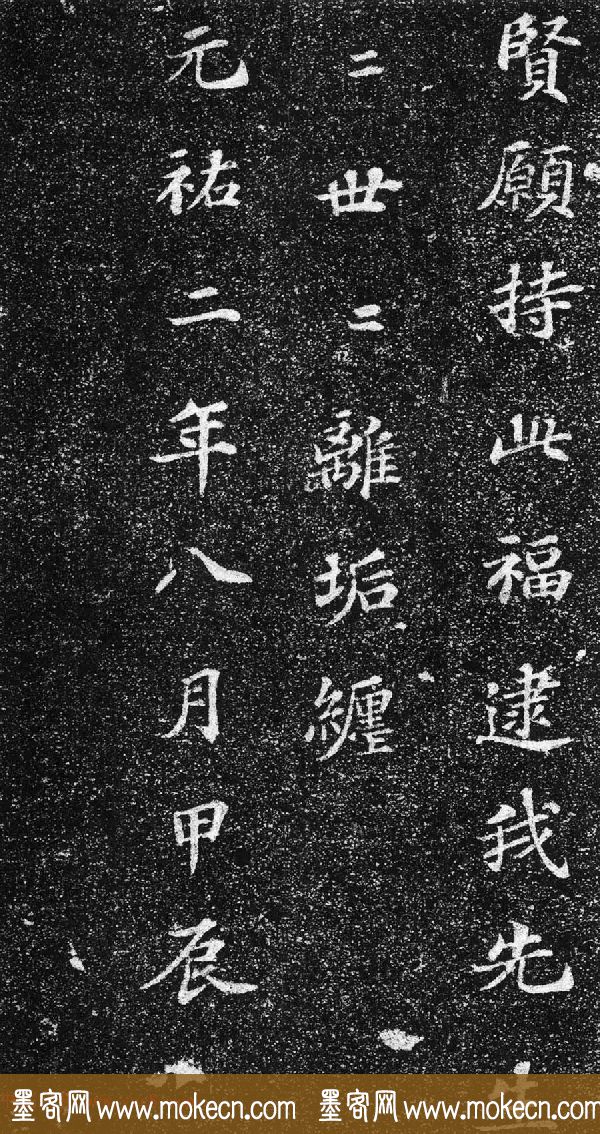 賢願持此福逮我先生
二世二離垢纏
元祐二年八月甲辰
墨客网 www.mokecn.com 墨客网 www.mokecn.com